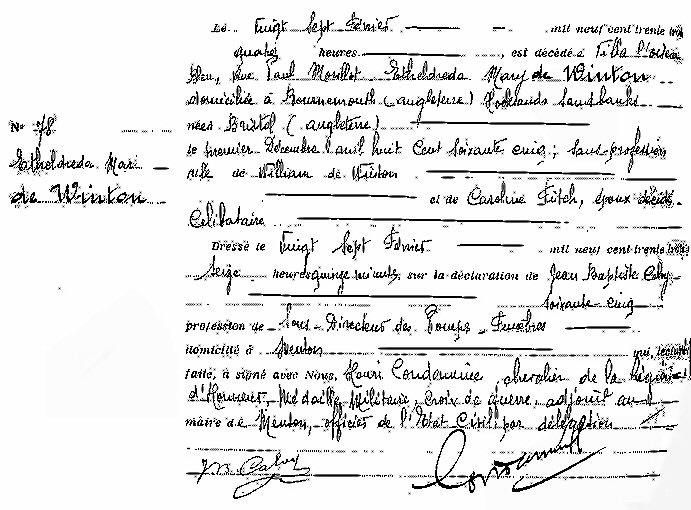 Le Vingt Sept Février mil neuf cent trente trois
quatre heures, est décédé à Villa l'océan
Bleu, Rue Paul Morillot Etheldreda Mary de Winton
domiciliée à Bournemouth (angleterre) Sandbanks
née à Bristol (angleterre)
Nº 78
le premier Décembre mil huit Cent soixante cinq ; sans profession
Etheldreda Mary
fille de William de Winton
de Winton
et de Caroline Fitch, époux décédés
Célibataire
Dressé le Vingt Sept Février mil neuf cent trente trois
Seize heures quinze minutes, sur la déclaration de Jean Baptiste Calvy
soixante cinq
profession de Sous-Directeur des Pompes-Funèbres
domicilié à Menton qui, lecture
faite, a signé avec Nous, Henri Condamine, chevalier de la Légion
d'Honneur, Médaille Militaire, Croix de guerre, adjoint au
maire de Menton, officier de l'Etat Civil par délégation